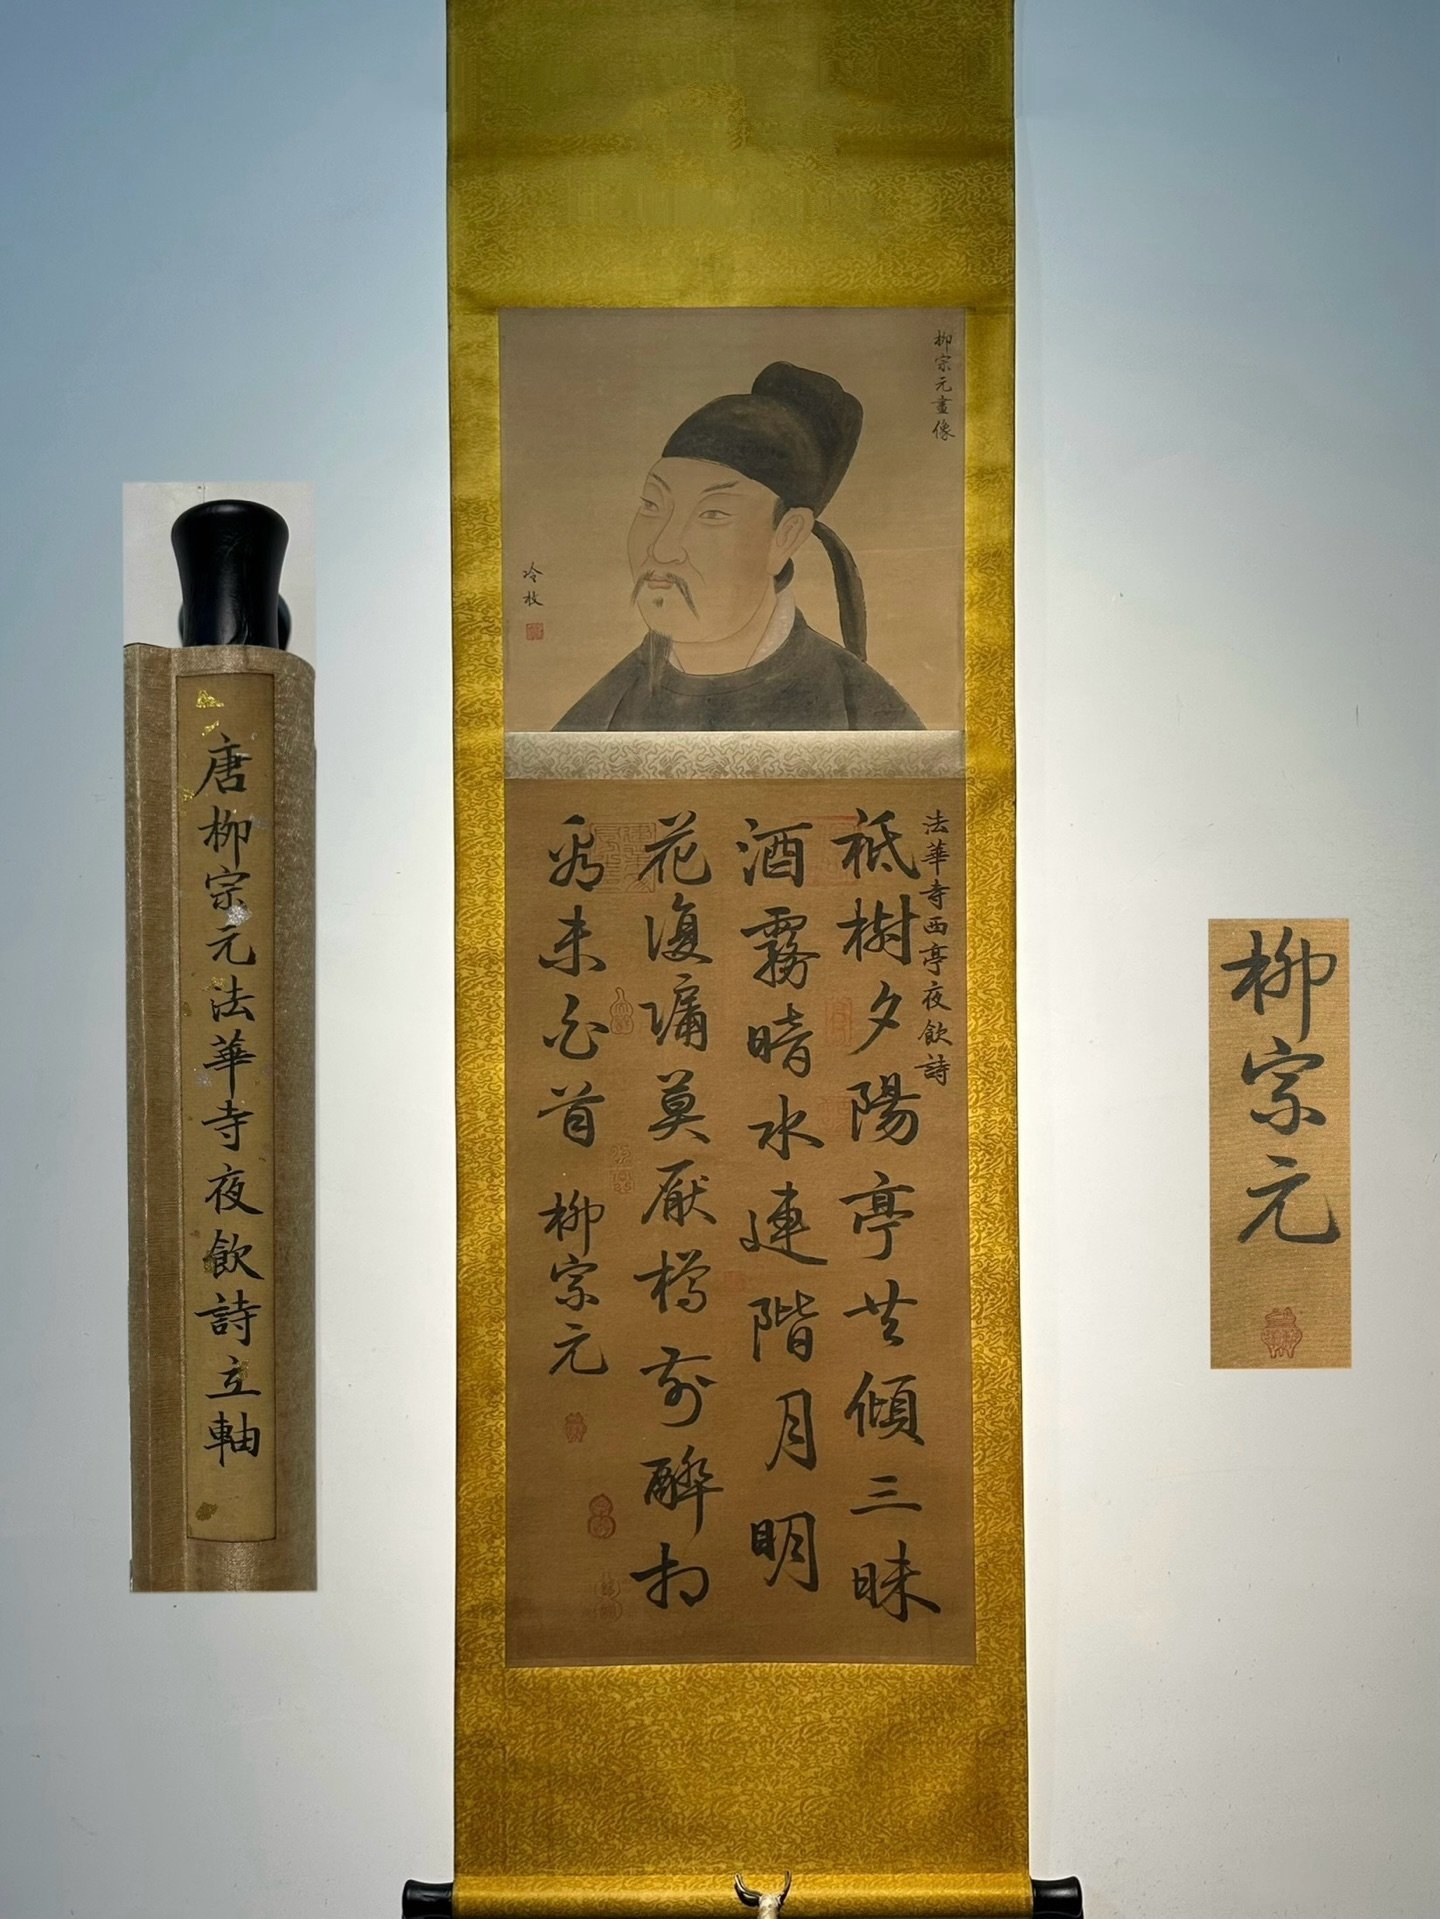 柳宗元畫像
冷枚
法華寺西亭夜飲詩
祗樹夕陽亭共傾三昧
酒霧暗水連階月明
花復牖莫厭樽前醉相
看未白首 柳宗元
唐柳宗元法華寺夜飲詩立軸
柳宗元